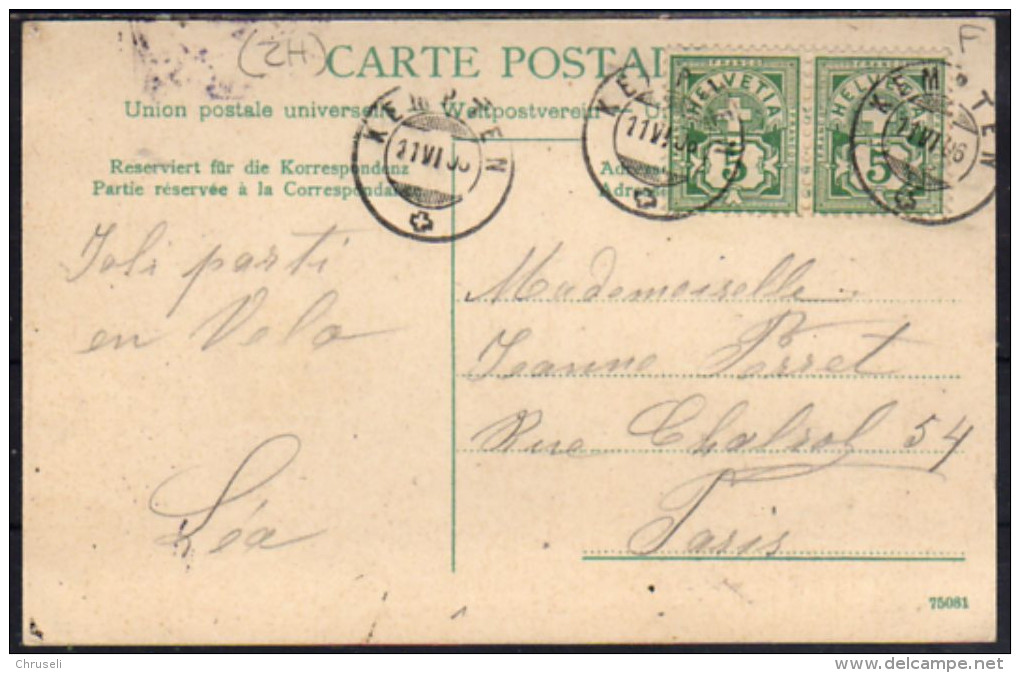 (ZH)
F
CARTE POSTAL
Union postale universelle Weltpostverein
Reserviert für die Korrespondenz
Partie réservée à la Correspondance
Adre
Adre
KEMPTEN
11 VI 06
KEMPTEN
11 VI 06
KEMPTEN
11 VI 06
FRANCO
HELVETIA
5
FRANCO
HELVETIA
5
Joli parti
en Velo
Léa
Mademoiselle
Jeanne Perret
Rue Chabrol 54
Paris
75081
Chruseli
delcampe.net